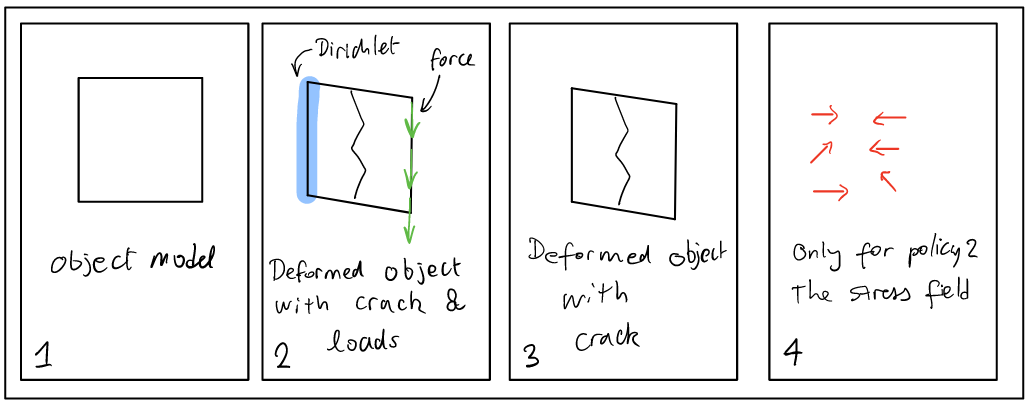 object model
1
Dirichlet
force
Deformed object
with crack &
loads
2
Deformed object
with
crack
3
Only for policy 2
The stress field
4